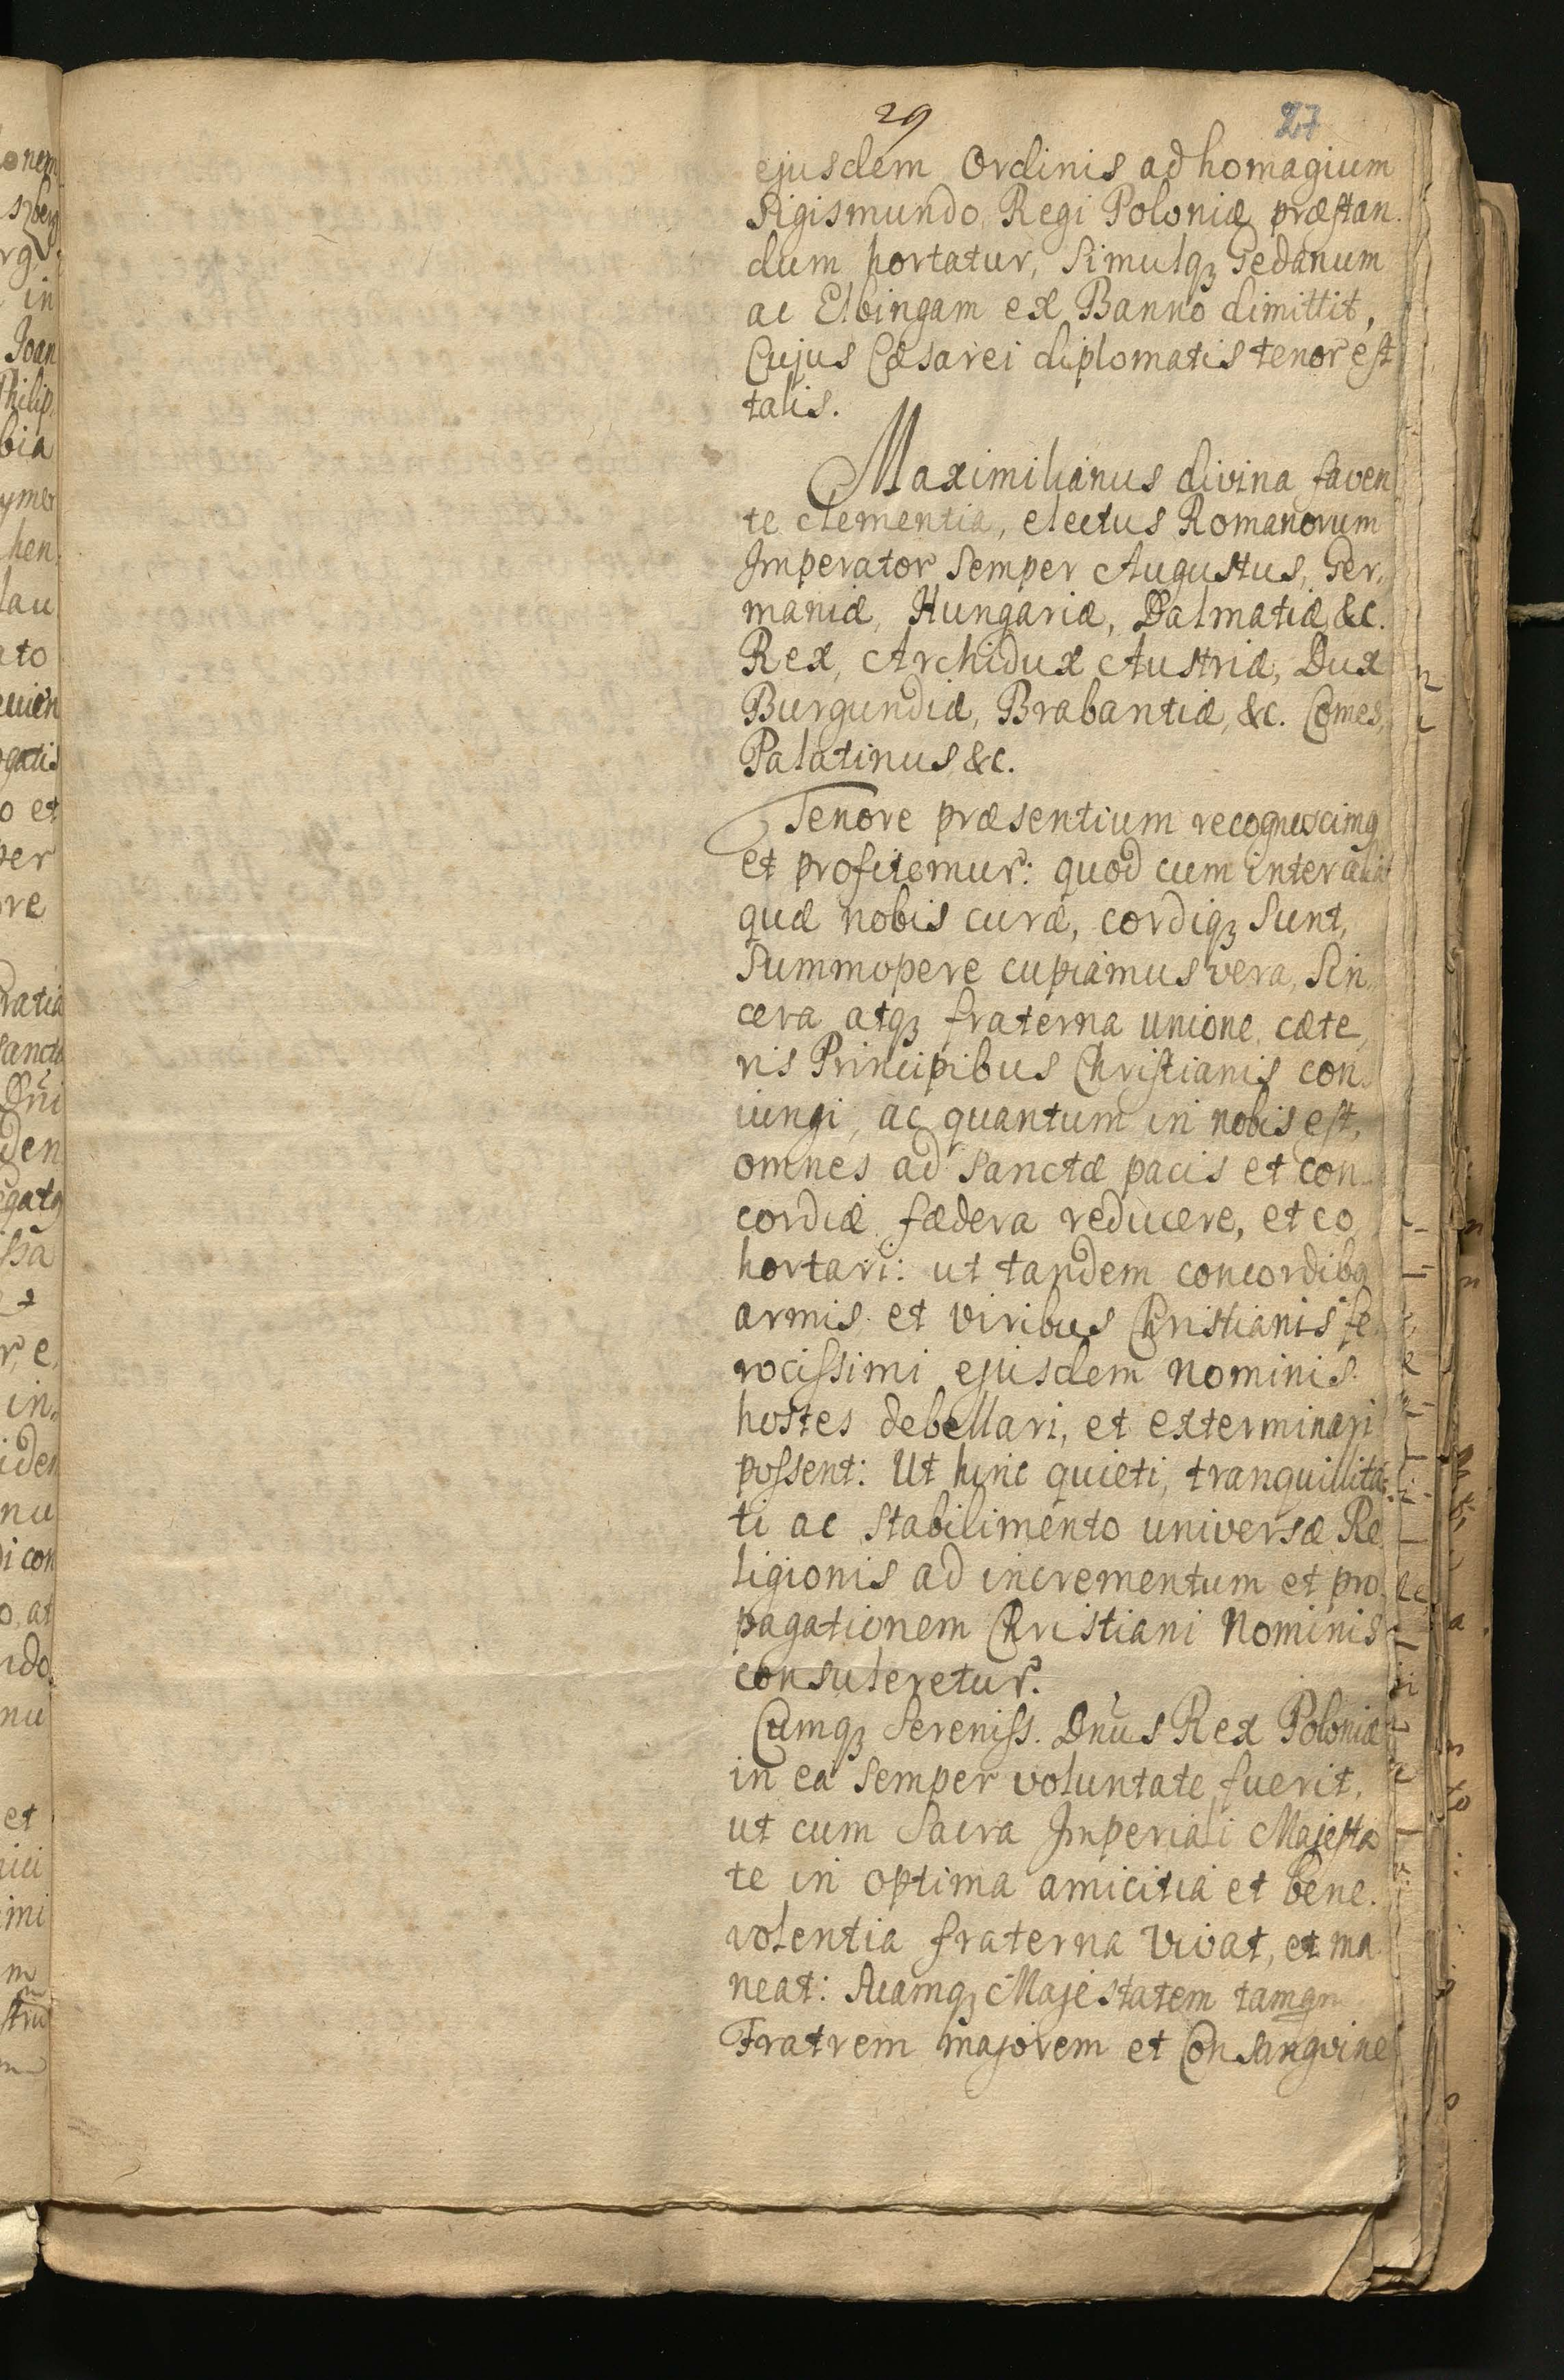 29
27
ejusdem Ordinis ad homagium
Sigismundo Regi Poloniæ præstan.
dum hortatur, Simulqꝫ Gedanum
ac Elbingam ex Banno dimittit,
Cujus Cæsarei diplomatis tenor est
talis.
Maximilianus divina faven
te clementia, electus Romanorum
Imperator Semper Augustus, Ger,
maniæ, Hungariæ, Dalmatiæ &c.
Rex, Archidux Austriæ, Dux
Burgundiæ, Brabantiæ, &c. Comes,
Palatinus &c.
Tenore præsentium recognoscimꝰ
et profitemur: quod cum inter alia
quæ nobis curæ, cordiqꝫ Sunt,
Summopere cupiamus vera, Sin,
cera atqꝫ fraterna unione, cæte,
ris Principibus Christianis con,
iungi, ac quantum in nobis est,
omnes ad Sanctæ pacis et con,
cordiæ fædera reducere, et co
hortari: ut tandem concordibꝰ
armis et viribus Christianis fe
rocissimi ejusdem nominis
hostes debellari, et exterminari
possent: Ut hinc quieti, tranquillita:
ti ac Stabilimento universæ Re,
ligionis ad incrementum et pro,
pagationem Christiani Nominis
consuleretur.
Cumqꝫ Sereniss. Dnus Rex Poloniæ
in ea Semper voluntate fuerit,
ut cum Sacra Imperiali Majesta
te in optima amicitia et bene.
volentia fraterna vivat, et ma
neat: Suamqꝫ Majestatem tamqn
Fratrem majorem et Consangvine